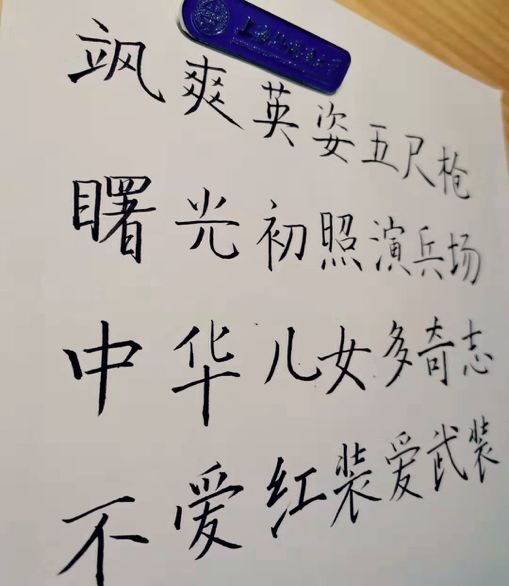 飒爽英姿五尺枪
曙光初照演兵场
中华儿女多奇志
不爱红装爱武装